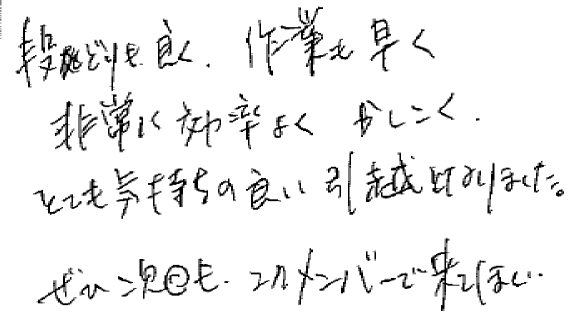 段どりも良く、作業も早く
非常に効率よく かしこく、
とても気持ちの良い引越になりました。
ぜひ次回も、このメンバーで来てほしい。